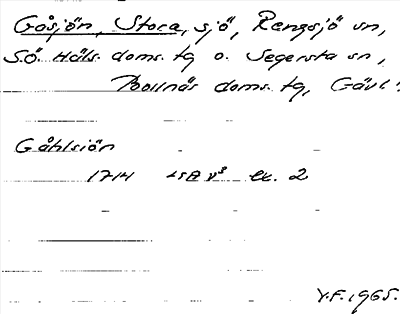 Gåsjön, Stora, sjö, Rengsjö sn,
Sö. Häls. doms. tg o. Segersta sn,
Bollnäs doms. tg, Gävl.
Gåhlsiön
1714 LSB v³ ek. 2
Y.F. 1965.